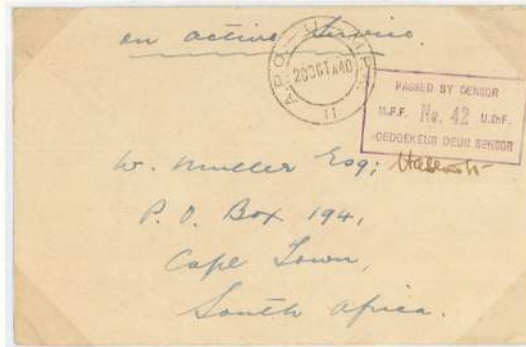 on active service.
A.P.O. — U-M.P.S.
28 OCT A 40
11
PASSED BY CENSOR
M.F.F. No. 42 U.D.F.
GOEDGEKEUR DEUR SENSOR
W. Muller Esq;
P. O. Box 194,
Cape Town,
South Africa.